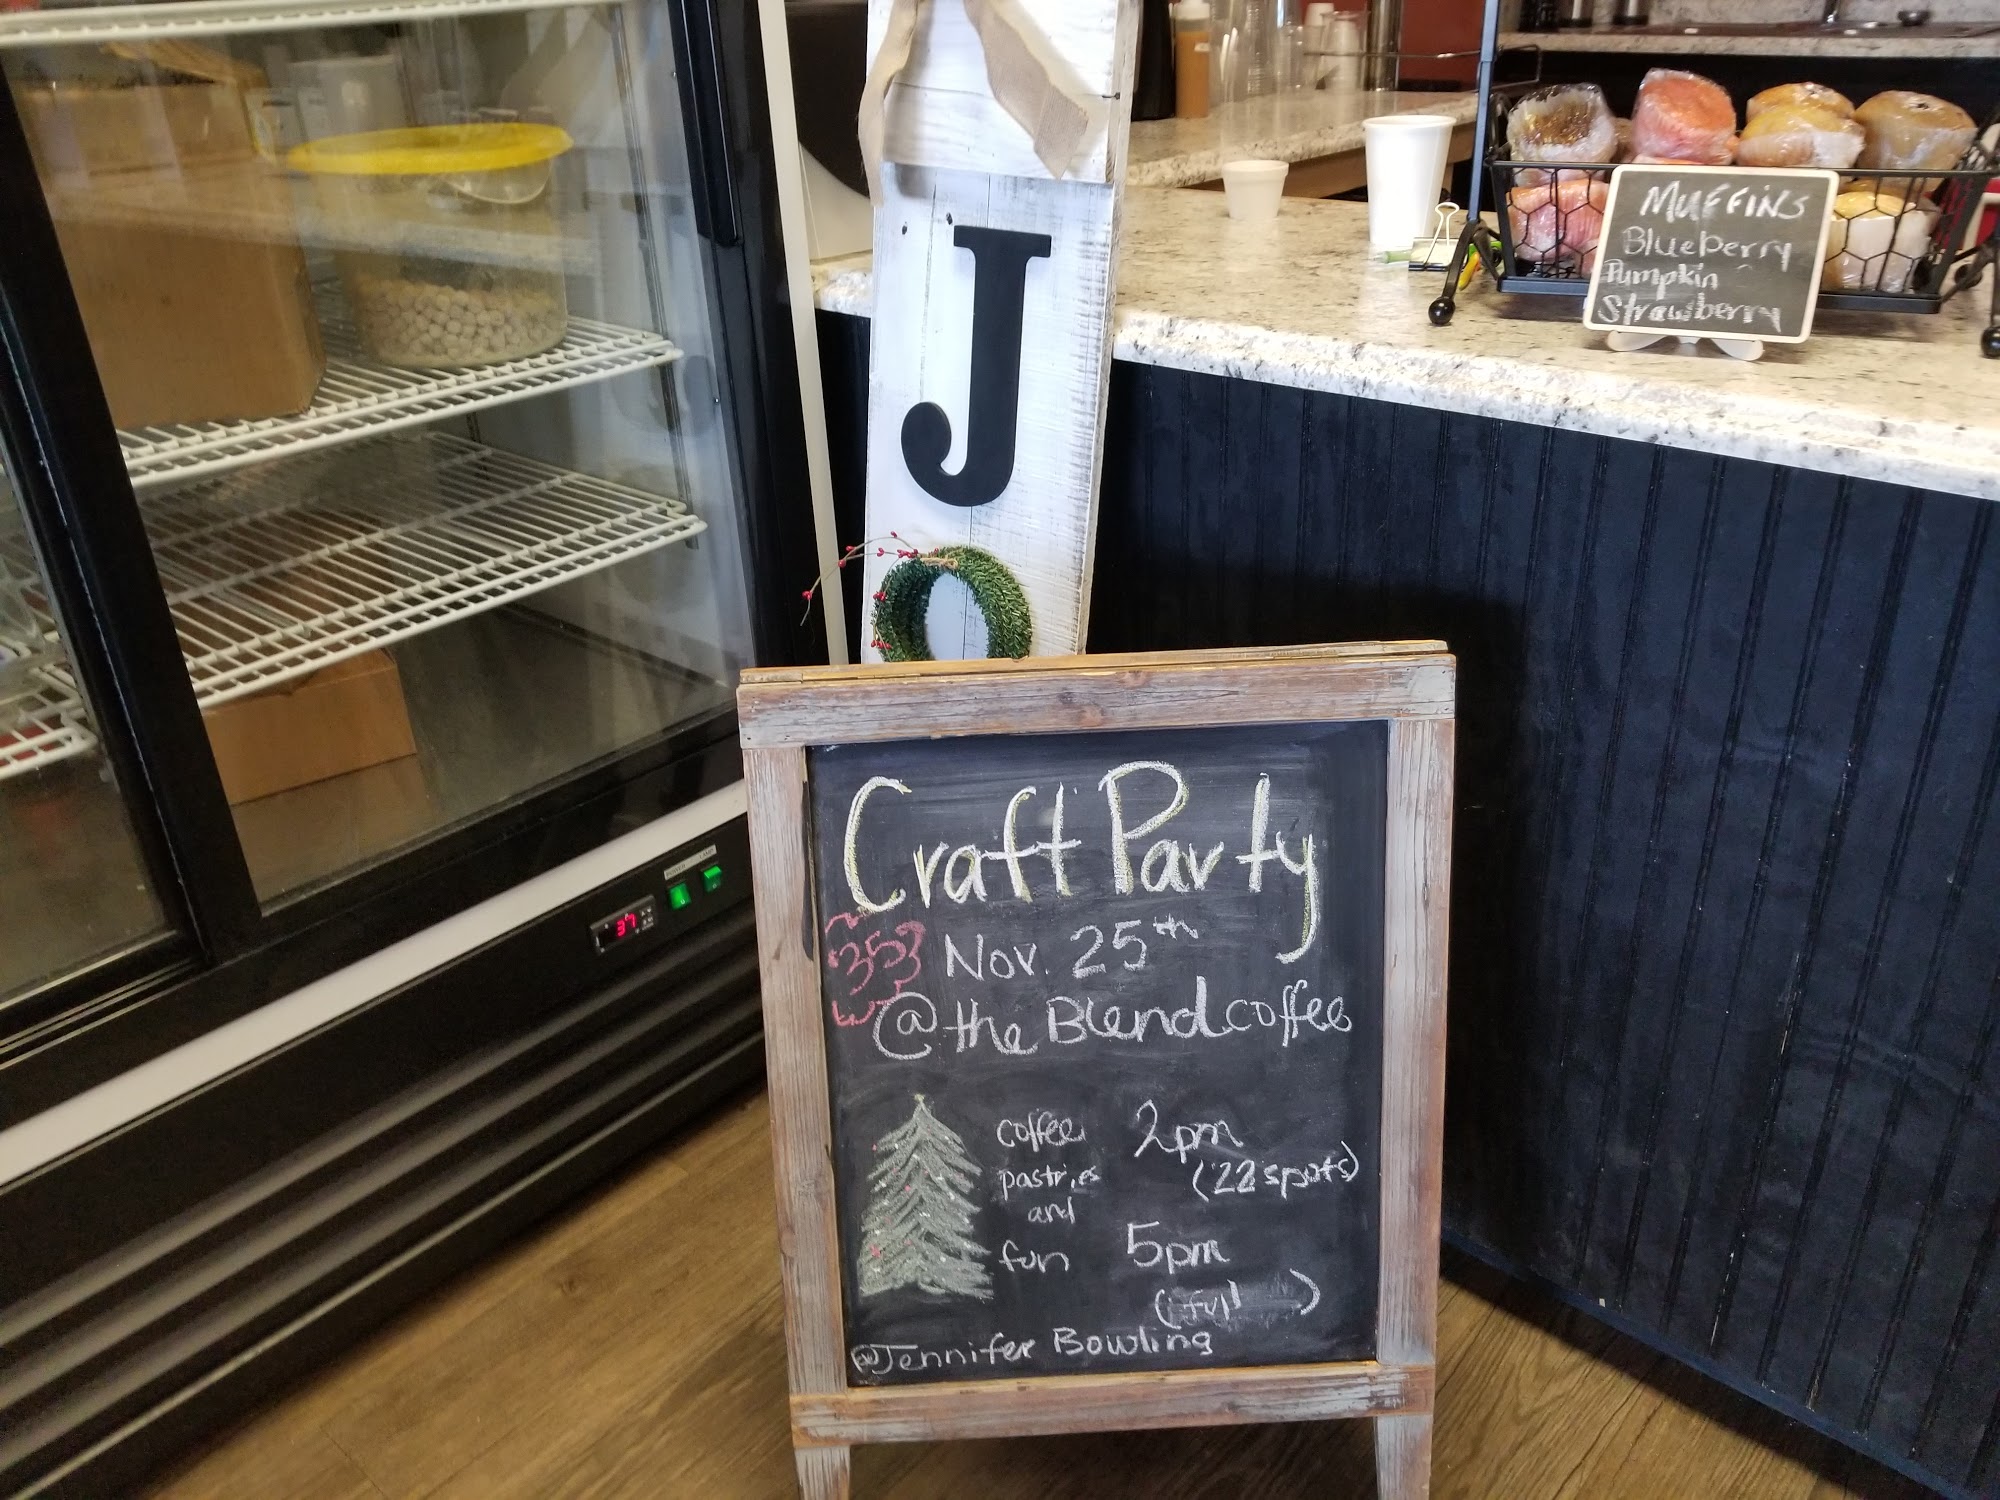 J
MUFFiNS
Blueberry
Pumpkin
Strawberry
Craft Party
35
Nov. 25th
@ the Blend coffee
coffee
pastries
and
fun
2pm
(22 spots)
5pm
(full )
@Jennifer Bowling
37